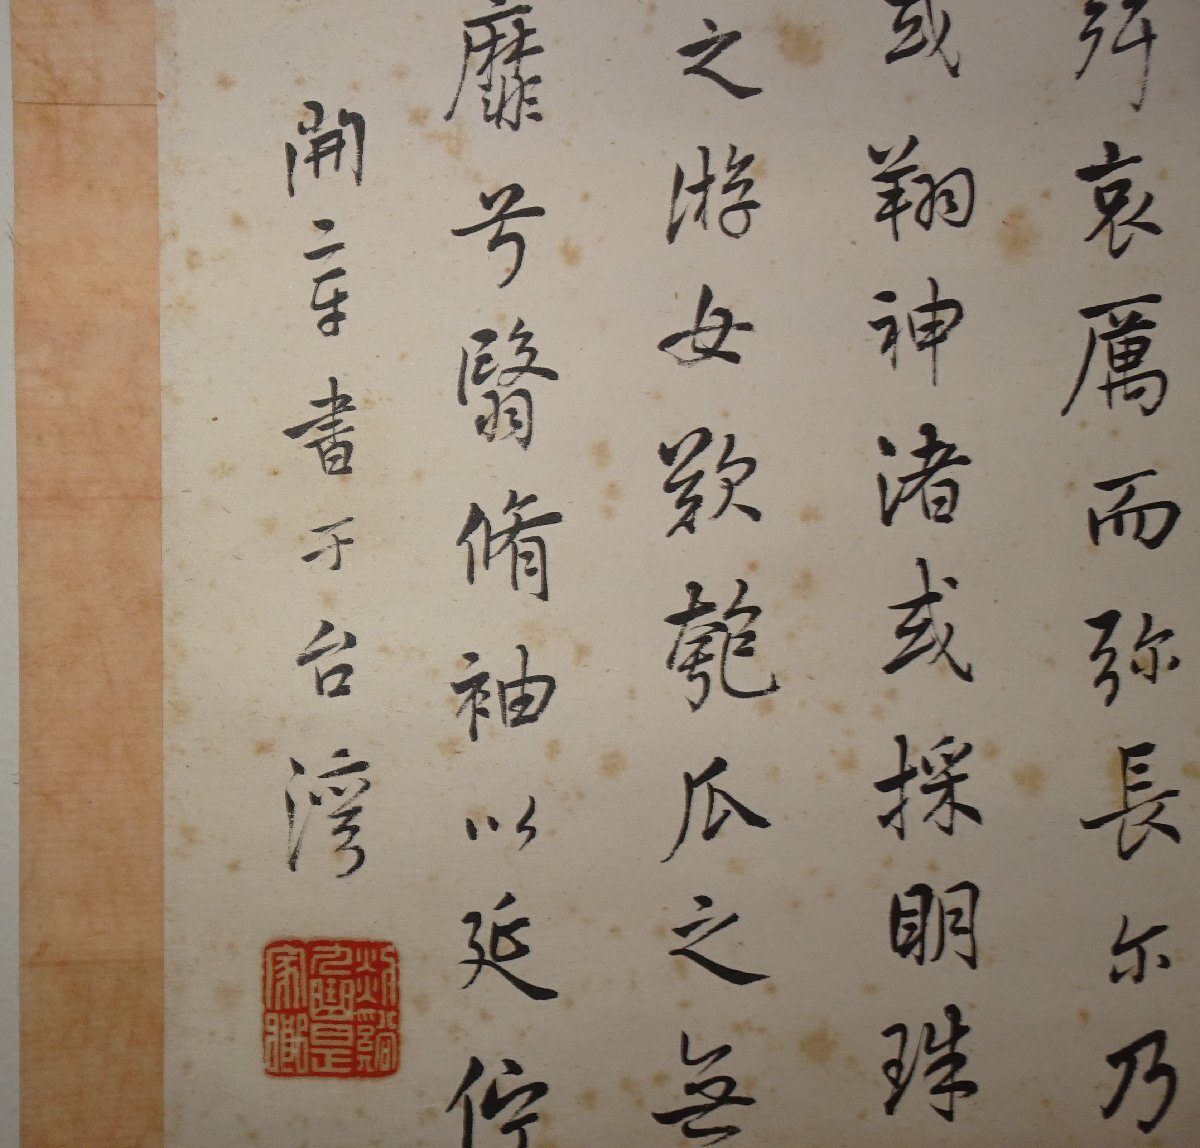 哀厲而弥長尓乃
或翔神渚或採明珠
之游女歎匏瓜之無
靡兮翳脩袖以延佇
開章書于台灣